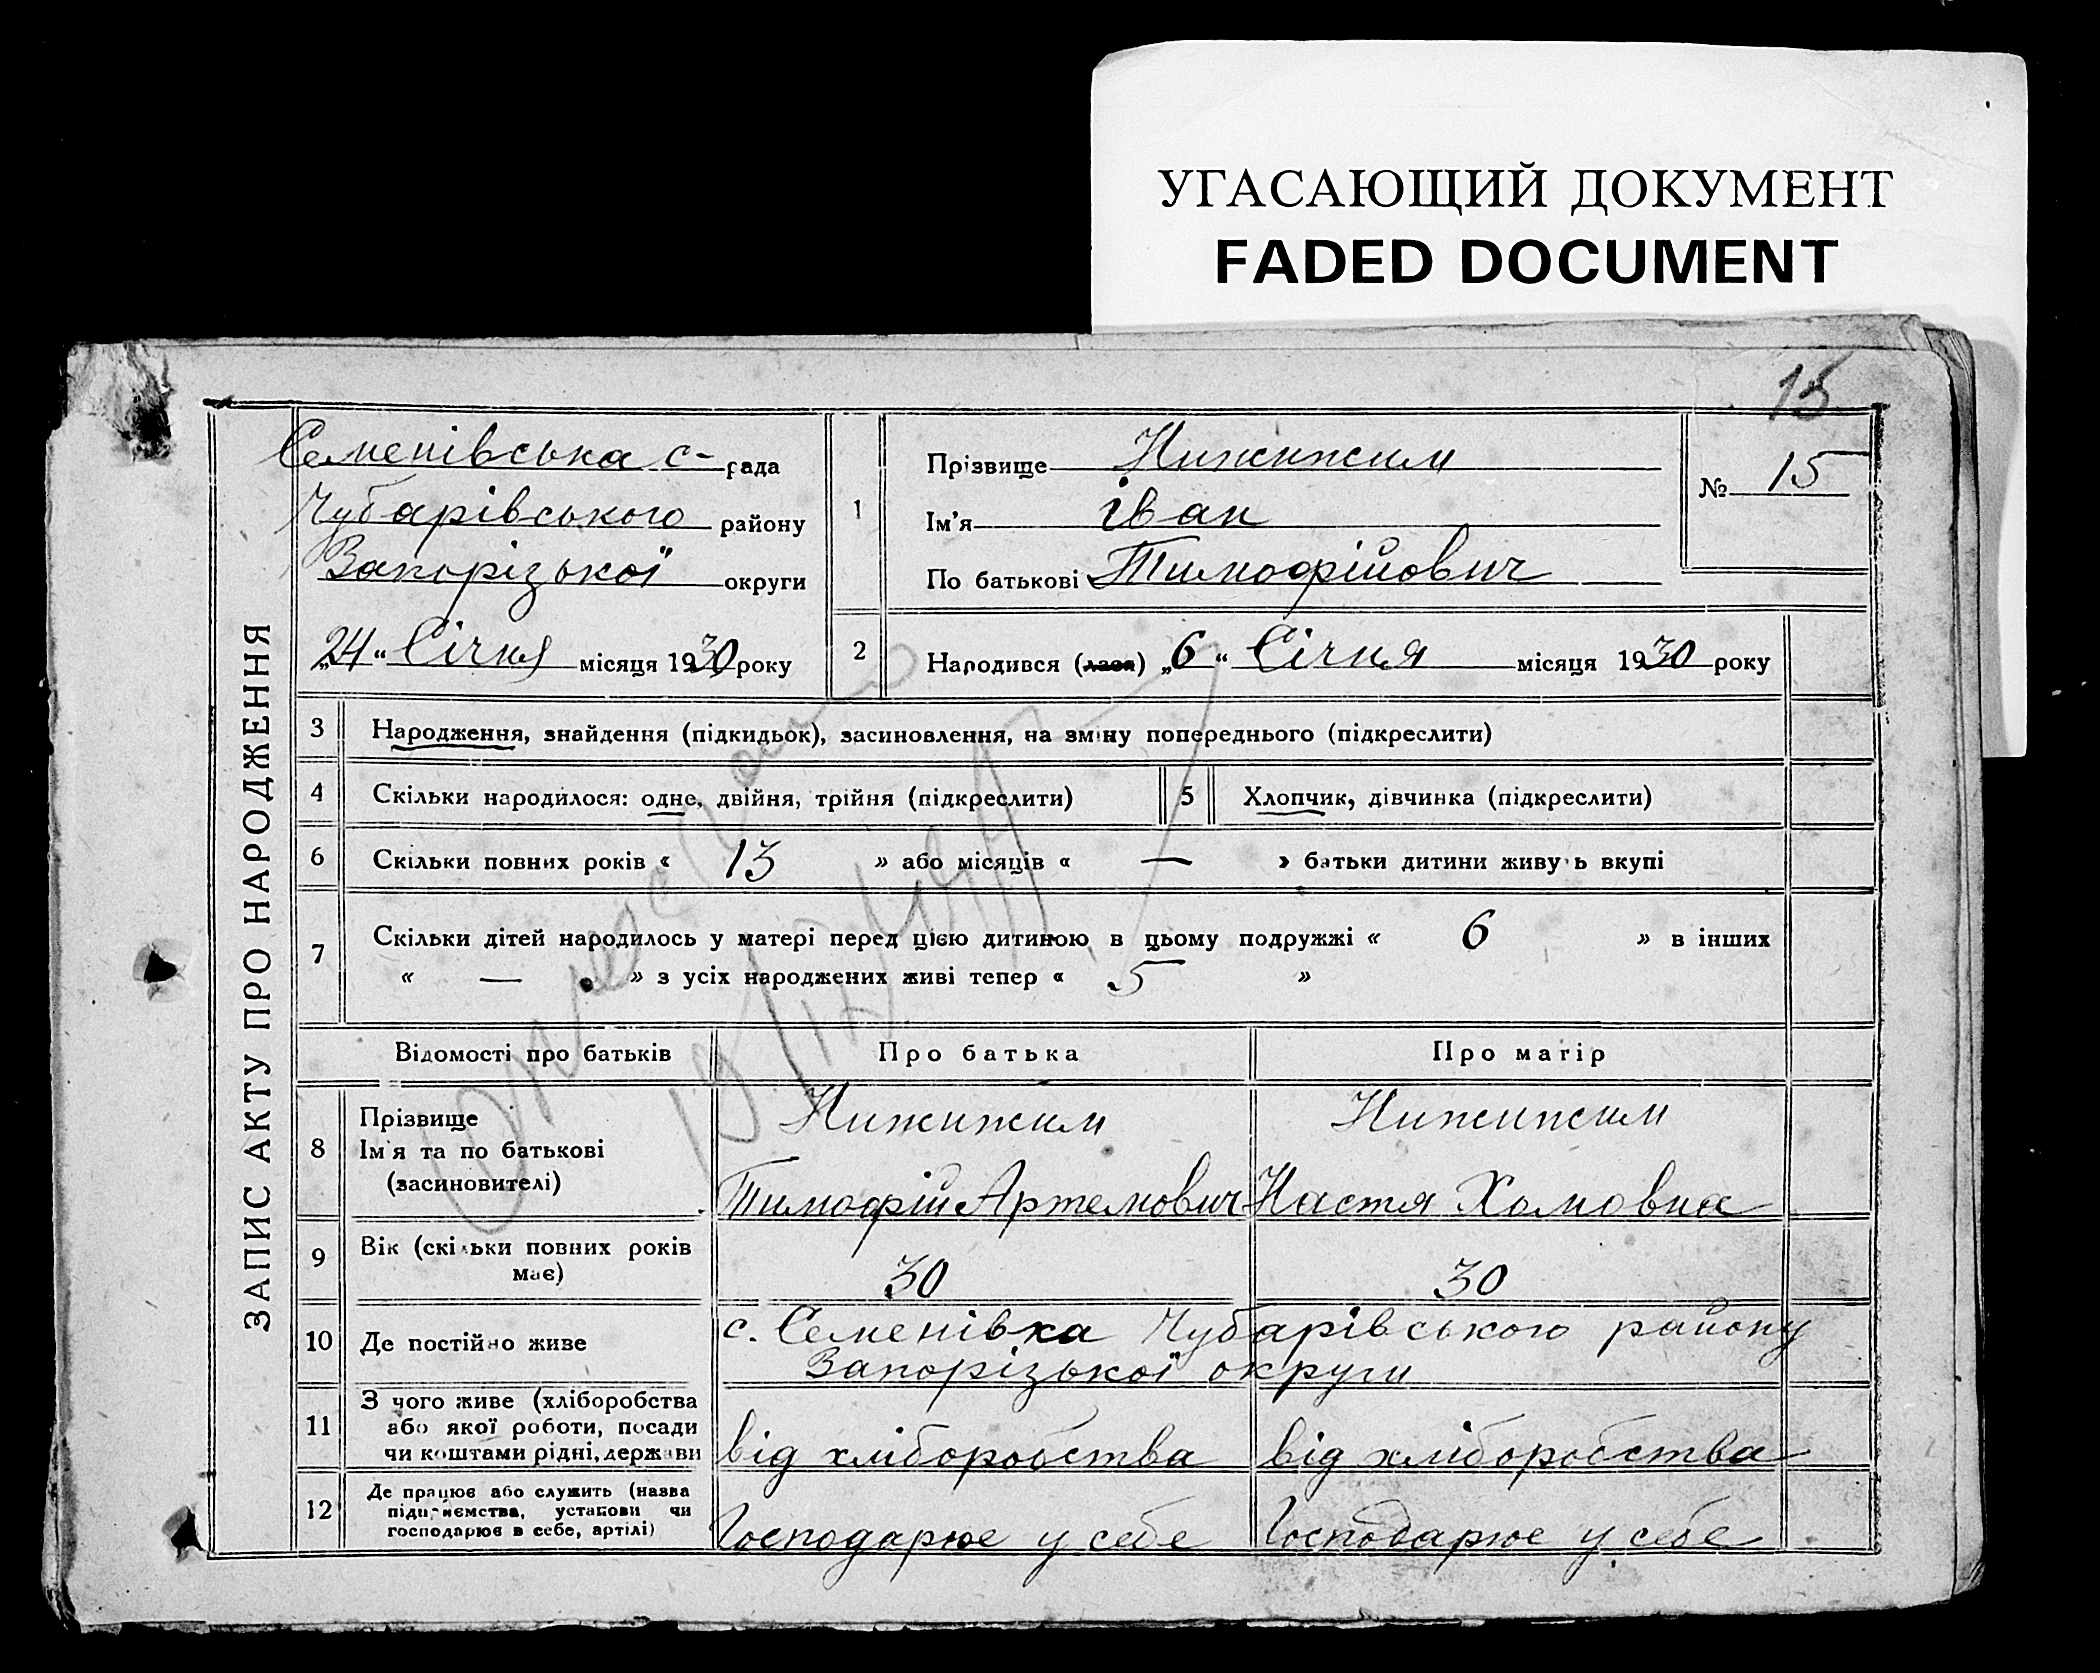 УГАСАЮЩИЙ ДОКУМЕНТ
FADED DOCUMENT
15
ЗАПИС АКТУ ПРО НАРОДЖЕННЯ
Семенівська с- рада
Чубарівського району
Запорізької округи
„24“ Січня місяця 1930 року
1
Прізвище Нижижим
Ім'я Іван
По батькові Тимофійович
№ 15
2 Народився (лася) „6“ Січня місяця 1930 року
3 Народження, знайдення (підкидьок), засиновлення, на зміну попереднього (підкреслити)
4 Скільки народилося: одне, двійня, трійня (підкреслити) 5 Хлопчик, дівчинка (підкреслити)
6 Скільки повних років « 13 » або місяців « — » батьки дитини живуть вкупі
7 Скільки дітей народилось у матері перед цією дитиною в цьому подружжі « 6 » в інших
« — » з усіх народжених живі тепер « 5 »
Відомості про батьків Про батька Про матір
8 Прізвище
Ім'я та по батькові
(засиновителі)
Нижижим
Тимофій Артемович
Нижижим
Настя Хомовна
9 Вік (скільки повних років
має)
30 30
10 Де постійно живе
с. Семенівка Чубарівського району
Запорізької округи
11 З чого живе (хліборобства
або якої роботи, посади
чи коштами рідні, держави
від хліборобства від хліборобства
12 Де працює або служить (назва
підприємства, установи чи
господарює в себе, артілі)
Господарює у себе Господарює у себе